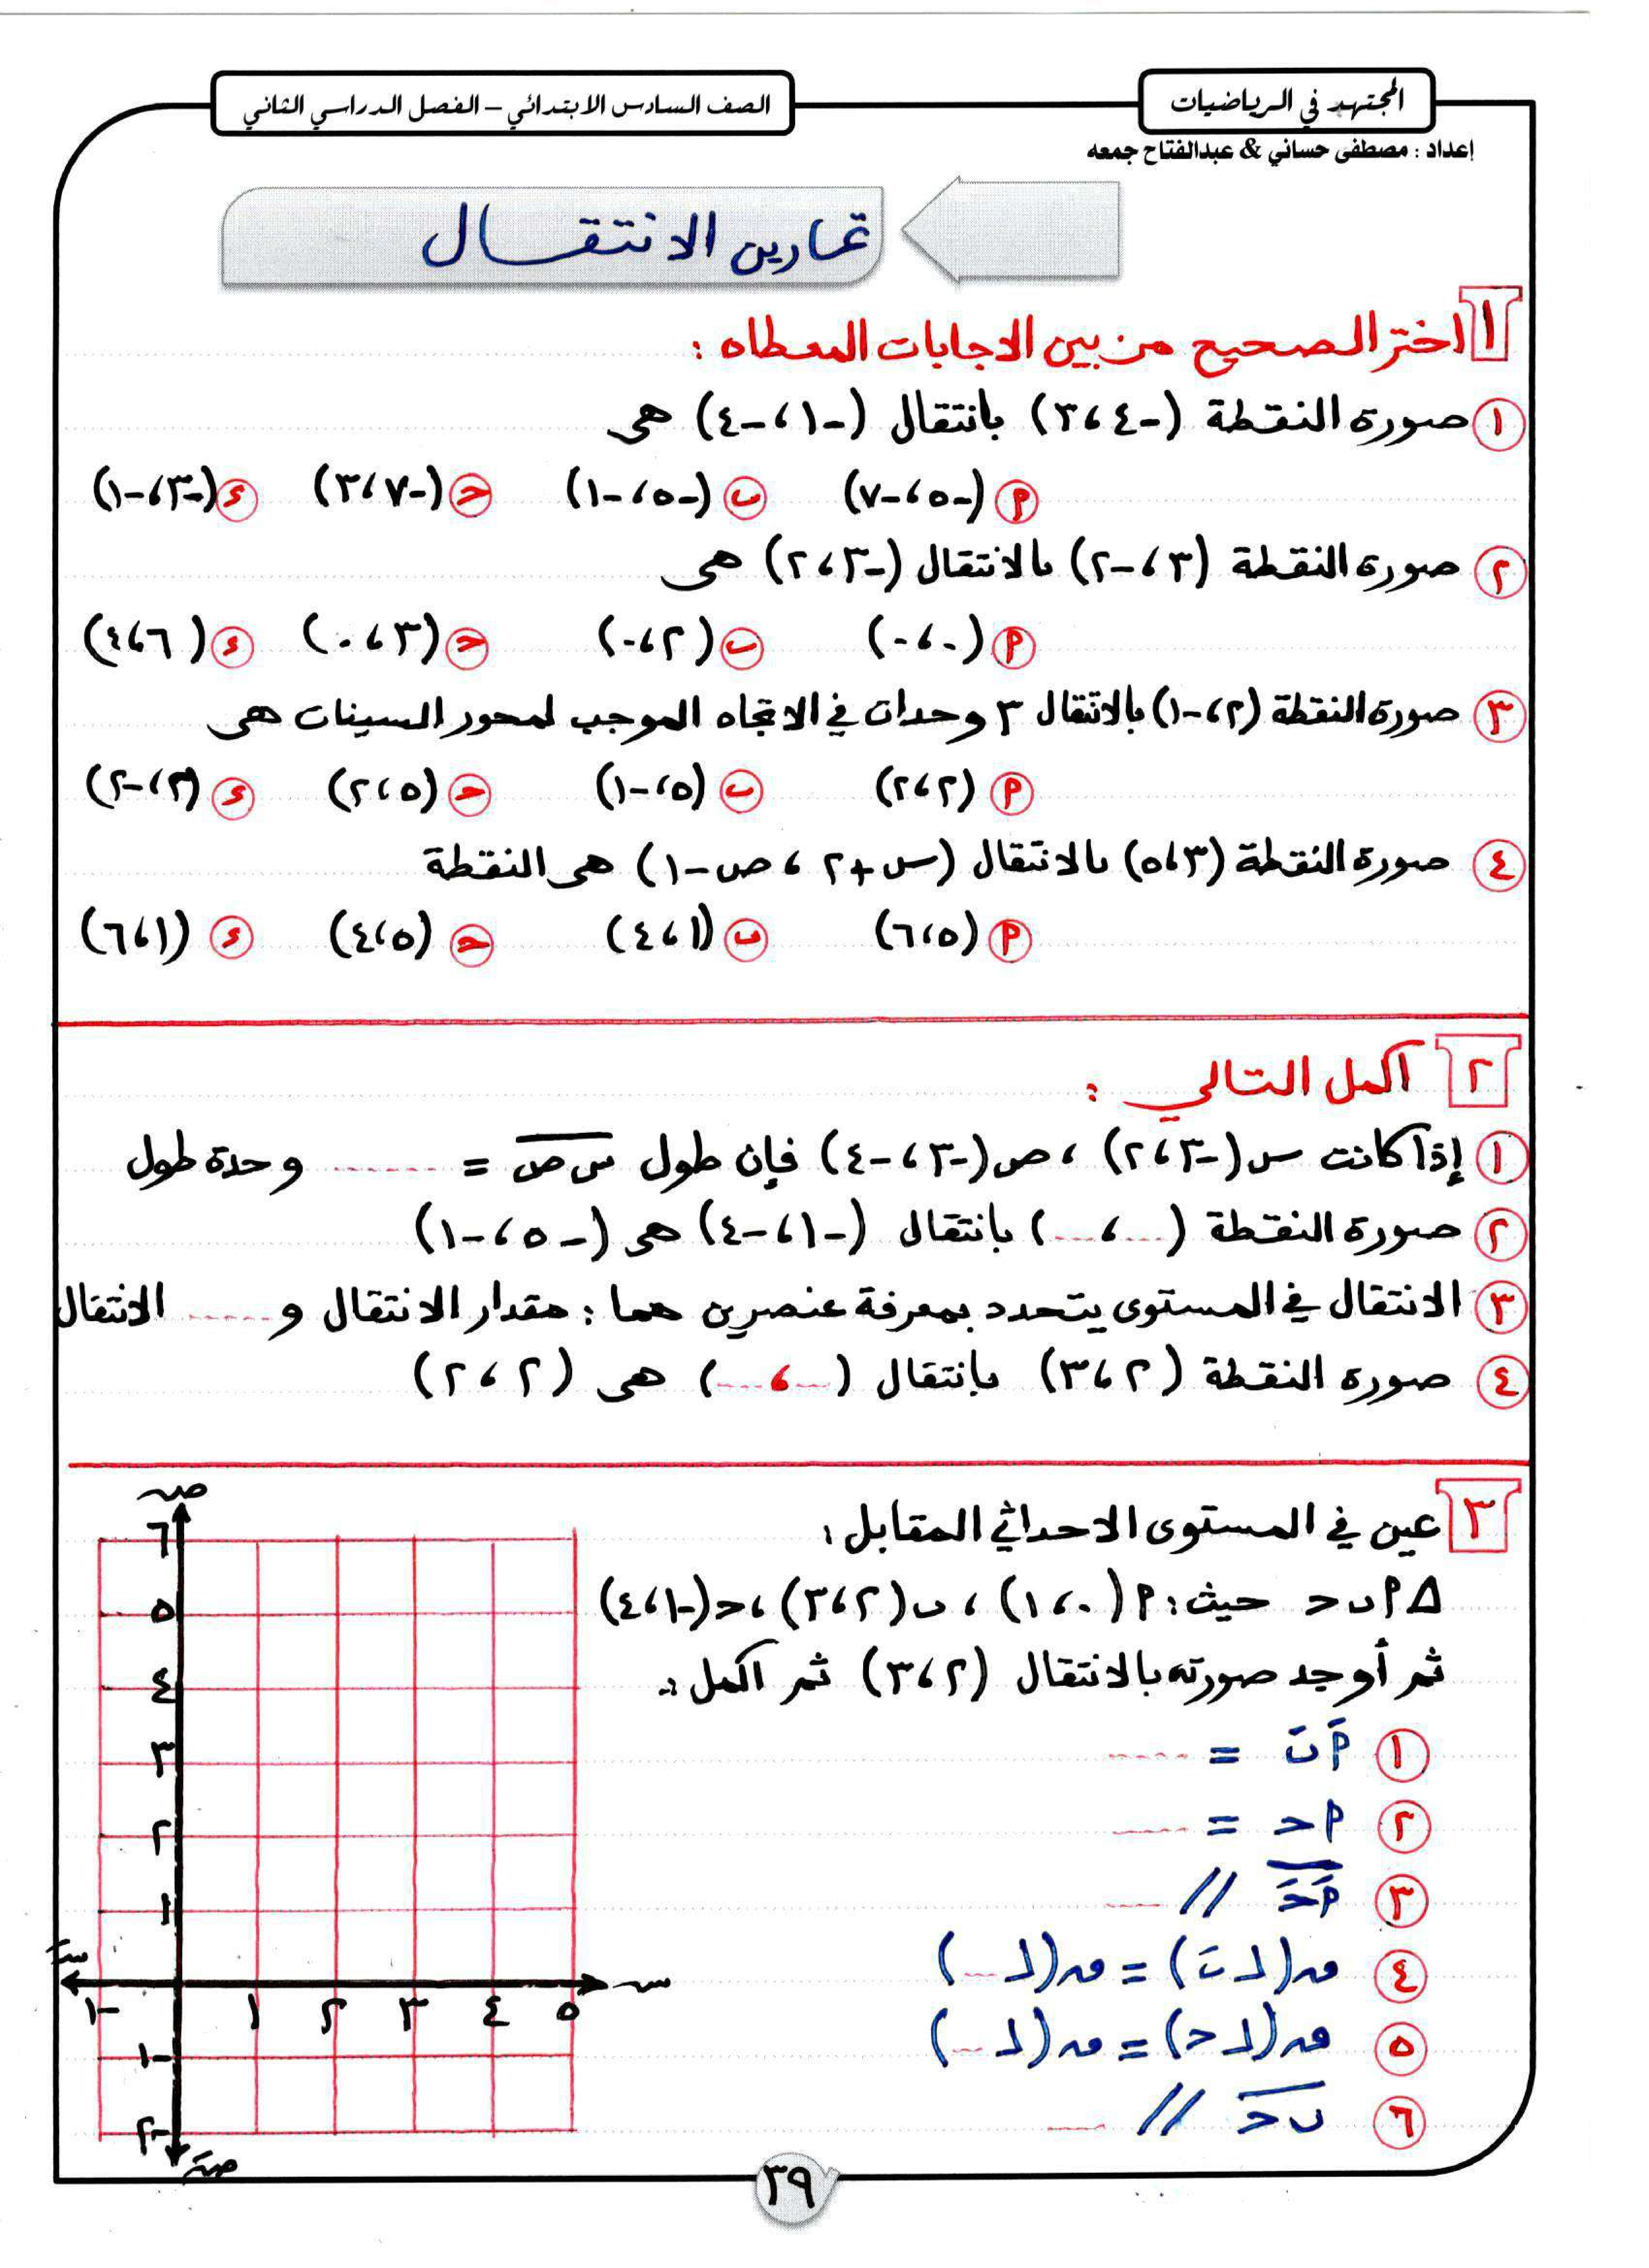 المجتهد في الرياضيات
الصف السادس الابتدائي – الفصل الدراسي الثاني
إعداد : مصطفى حساني & عبدالفتاح جمعه
تمارين الانتقال
١ اختر الصحيح من بين الاجابات المعطاه :
١ صورة النقطة (-٤ ، ٣) بانتقال (-١ ، -٤) هى
أ (-٥ ، -٧) ب (-٥ ، -١) ح (-٧ ، ٣) ء (-٣ ، -١)
٢ صورة النقطة (٣ ، -٢) بالانتقال (-٣ ، ٢) هى
أ (٠ ، ٠) ب (٢ ، ٠) ح (٣ ، ٠) ء (٦ ، ٤)
٣ صورة النقطة (٢ ، -١) بالانتقال ٣ وحدات في الاتجاه الموجب لمحور السينات هى
أ (٢ ، ٢) ب (٥ ، -١) ح (٥ ، ٢) ء (٣ ، -٢)
٤ صورة النقطة (٣ ، ٥) بالانتقال (س + ٢ ، ص - ١) هى النقطة
أ (٥ ، ٦) ب (١ ، ٤) ح (٥ ، ٤) ء (١ ، ٦)
٢ أكمل التالي :
١ إذا كانت س (-٣ ، ٢) ، ص (-٣ ، -٤) فإن طول س ص = ...... وحدة طول
٢ صورة النقطة (... ، ...) بانتقال (-١ ، -٤) هى (-٥ ، -١)
٣ الانتقال في المستوى يتحدد بمعرفة عنصرين هما : مقدار الانتقال و ...... الانتقال
٤ صورة النقطة (٢ ، ٣) بانتقال (... ، ...) هى (٢ ، ٢)
٣ عين في المستوى الاحداثي المقابل :
Δ أ ب ح حيث : أ (٠ ، ١) ، ب (٢ ، ٣) ، ح (-١ ، ٤)
ثم أوجد صورته بالانتقال (٢ ، ٣) ثم اكمل :-
١ أَ بَ = .....
٢ أ ح = .....
٣ أَ حَ // ....
٤ ق (∠ بَ) = ق (∠ ...)
٥ ق (∠ ح) = ق (∠ ...)
٦ ب ح // ....
ص
٦
٥
٤
٣
٢
١
سَ -١ ١ ٢ ٣ ٤ ٥ س
-١
-٢
صَ
٣٩